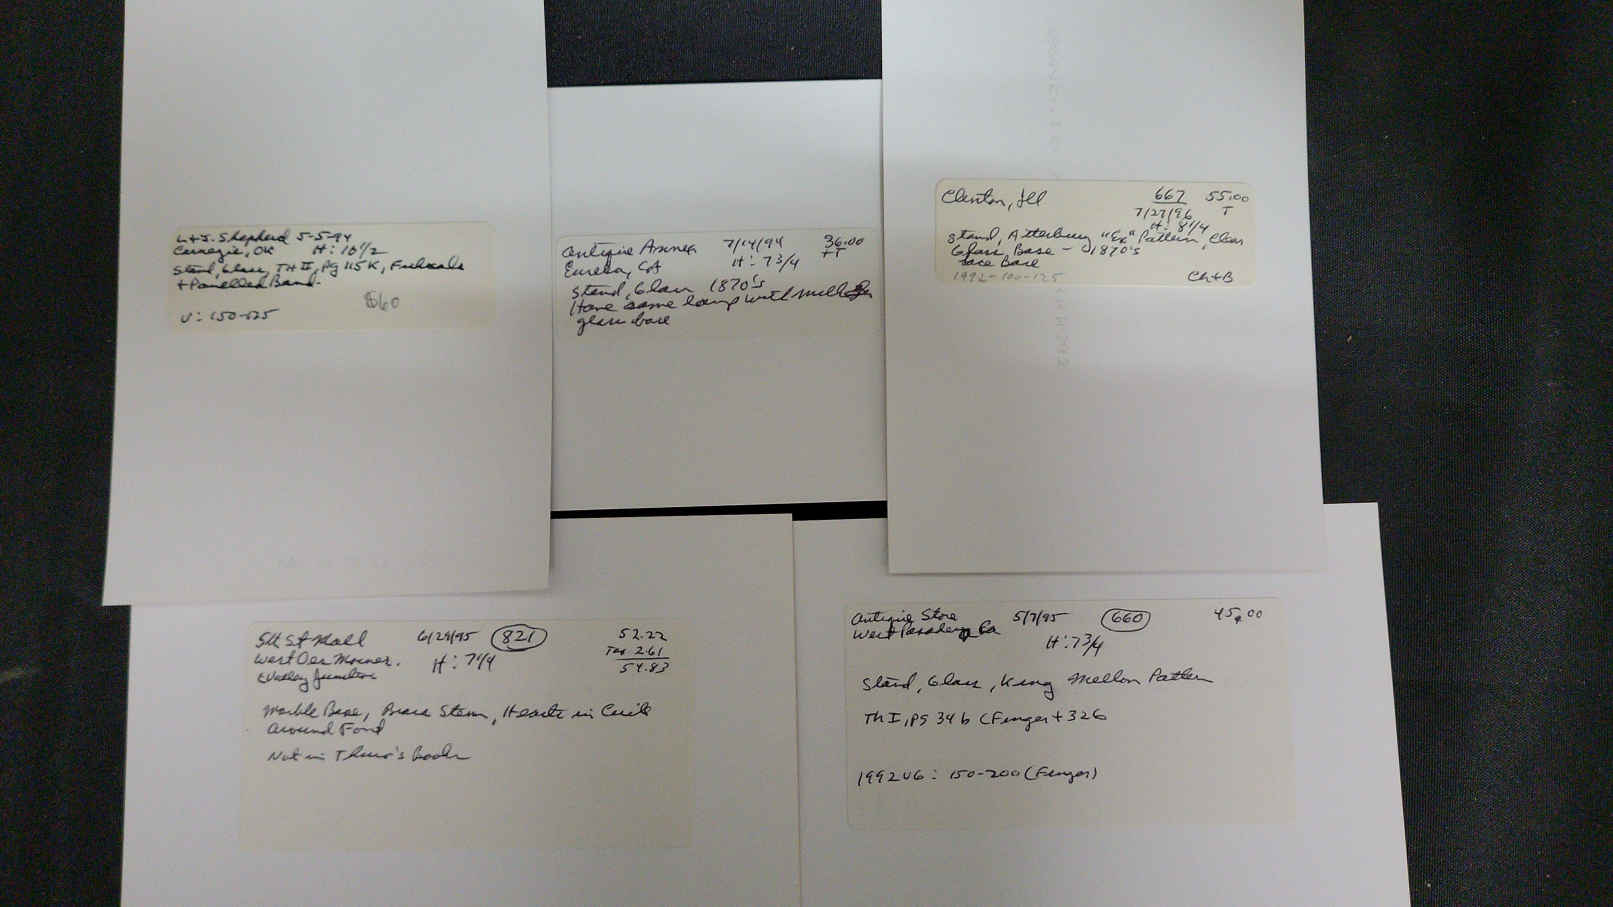 L+J. Shepherd 5-5-94
Carnegie, OK H: 10 1/2
Stand, Glass, TH II, Pg 115 K,
+ Panelled Band.
$60
V: 150-125
Antique Annex 7/14/94 36.00
Eureka, CA H: 7 3/4 + T
Stand, Glass 1870's
Have same lamp with milk
glass base
Clinton, Ill 667 55.00
7/27/96 T
H: 8 1/4
Stand, Atterbury "Ex" Pattern, Clear
Glass Base - 1870's
Base
1992-100-125 Ch+B
5th St Mall 6/29/95 821 52.22
West Des Moines. H: 7 1/4 Tax 2.61
Valley Junction 54.83
Marble Base, Brass Stem, Hearts in Circle
Around Font
Not in Thuro's Book
Antique Store 5/7/95 660 45.00
West Pa H: 7 3/4
Stand, Glass, King Mellon Pattern
Th I, pg 34 b (Finger + 326
1992 VG: 150-200 (Finger)